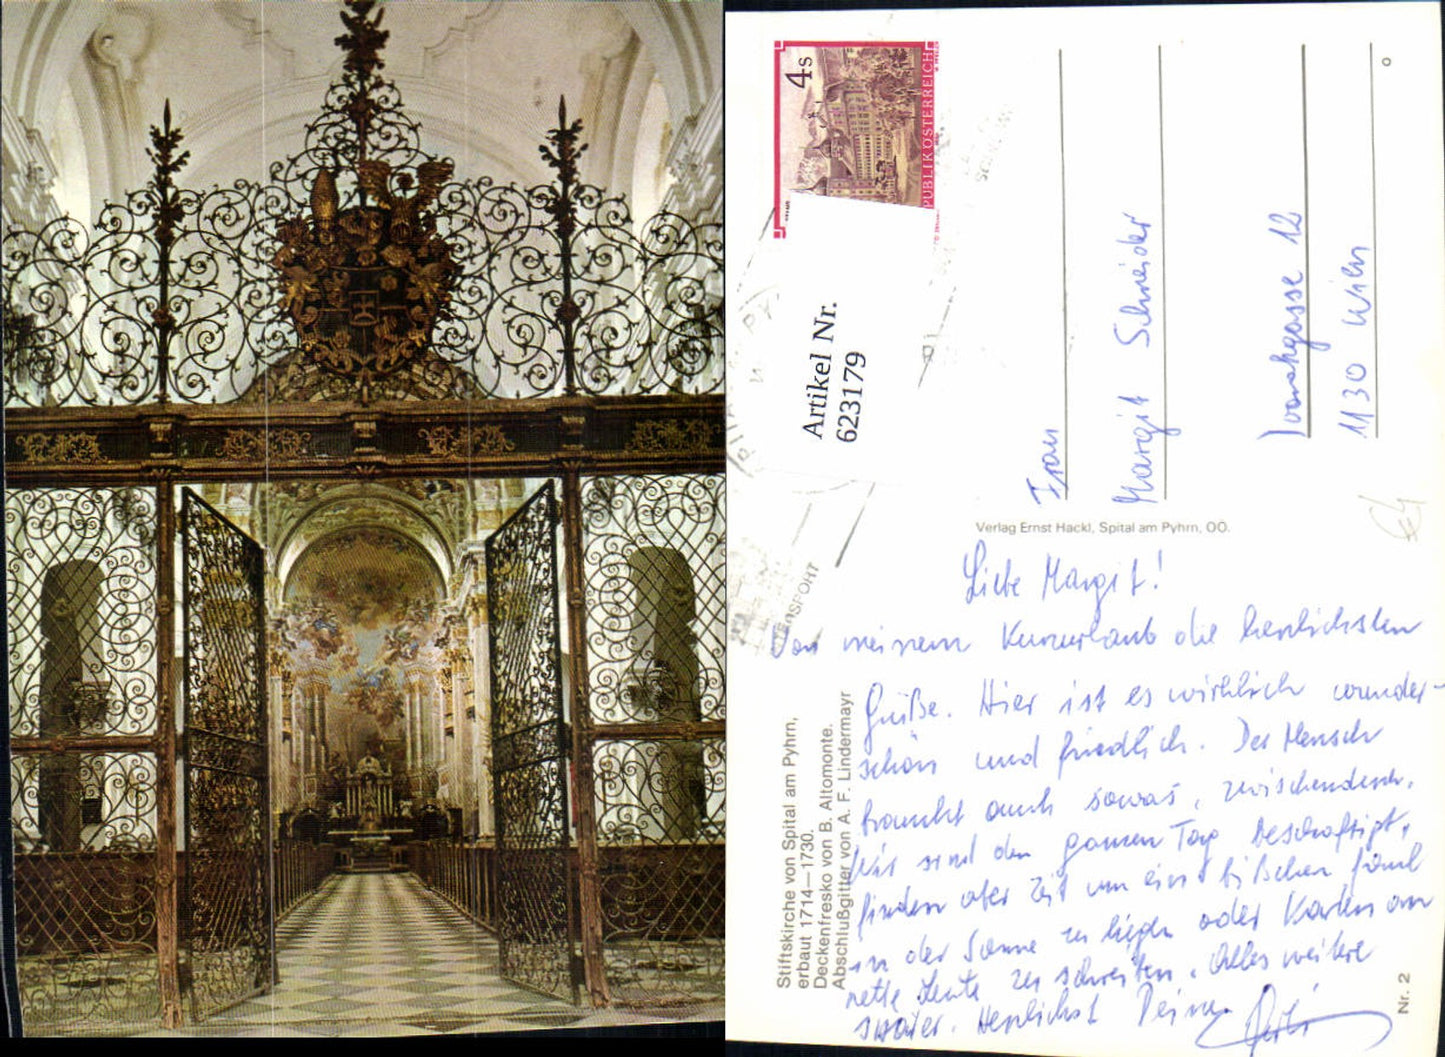 4s
PUBLIK ÖSTERREICH
Artikel Nr.
623179
Frau
Margit Schneider
12
1130 Wien
Verlag Ernst Hackl, Spital am Pyhrn, OÖ.
Liebe Margit!
Von meinem Kurzurlaub die herzlichsten
Grüße. Hier ist es wirklich wunder-
schön und friedlich. Der Mensch
braucht auch sowas, zwischendurch.
Wir sind den ganzen Tag beschäftigt,
finden aber Zeit um ein bißchen faul
in der Sonne zu liegen oder Karten an
nette Leute zu schreiben. Alles weitere
später. Herzlichst Deine
Stiftskirche von Spital am Pyhrn,
erbaut 1714—1730.
Deckenfresko von B. Altomonte.
Abschlußgitter von A. F. Lindermayr
Nr. 2